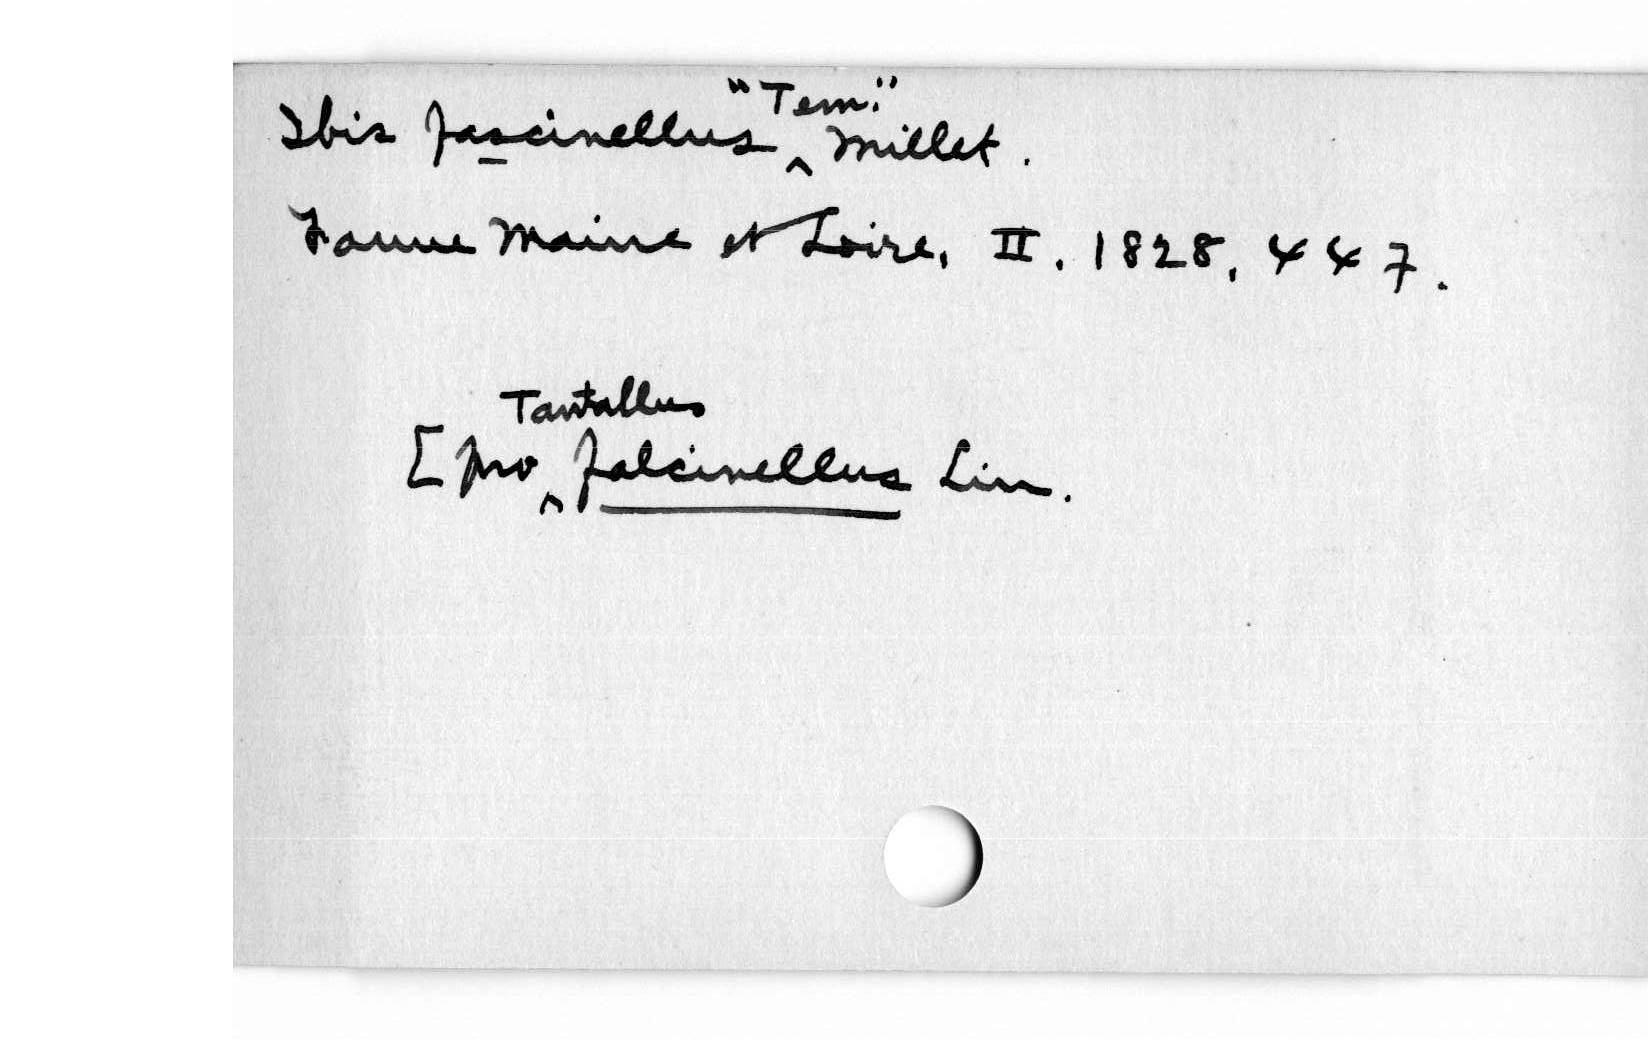 Ibis fascinellus "Tem." Millet.
Faune Maine et Loire, II. 1828, 447.
[pro Tantallus falcinellus Lin.